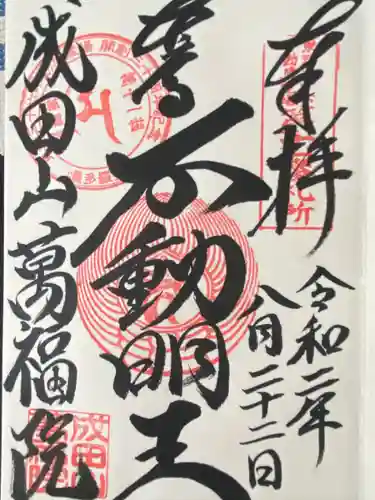 奉拝
令和二年
八月二十二日
尊不動明王
成田山萬福院